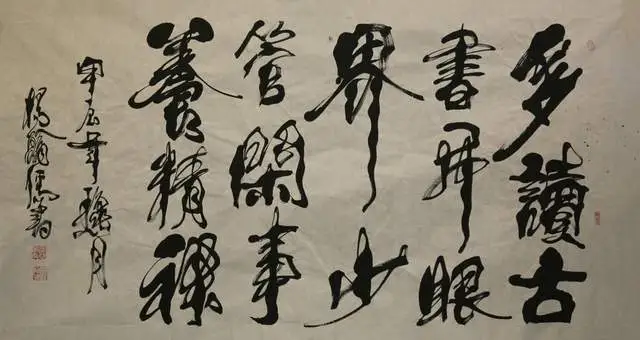 多讀古
書开眼
界少
管閑事
養精神
甲辰年月
楊書